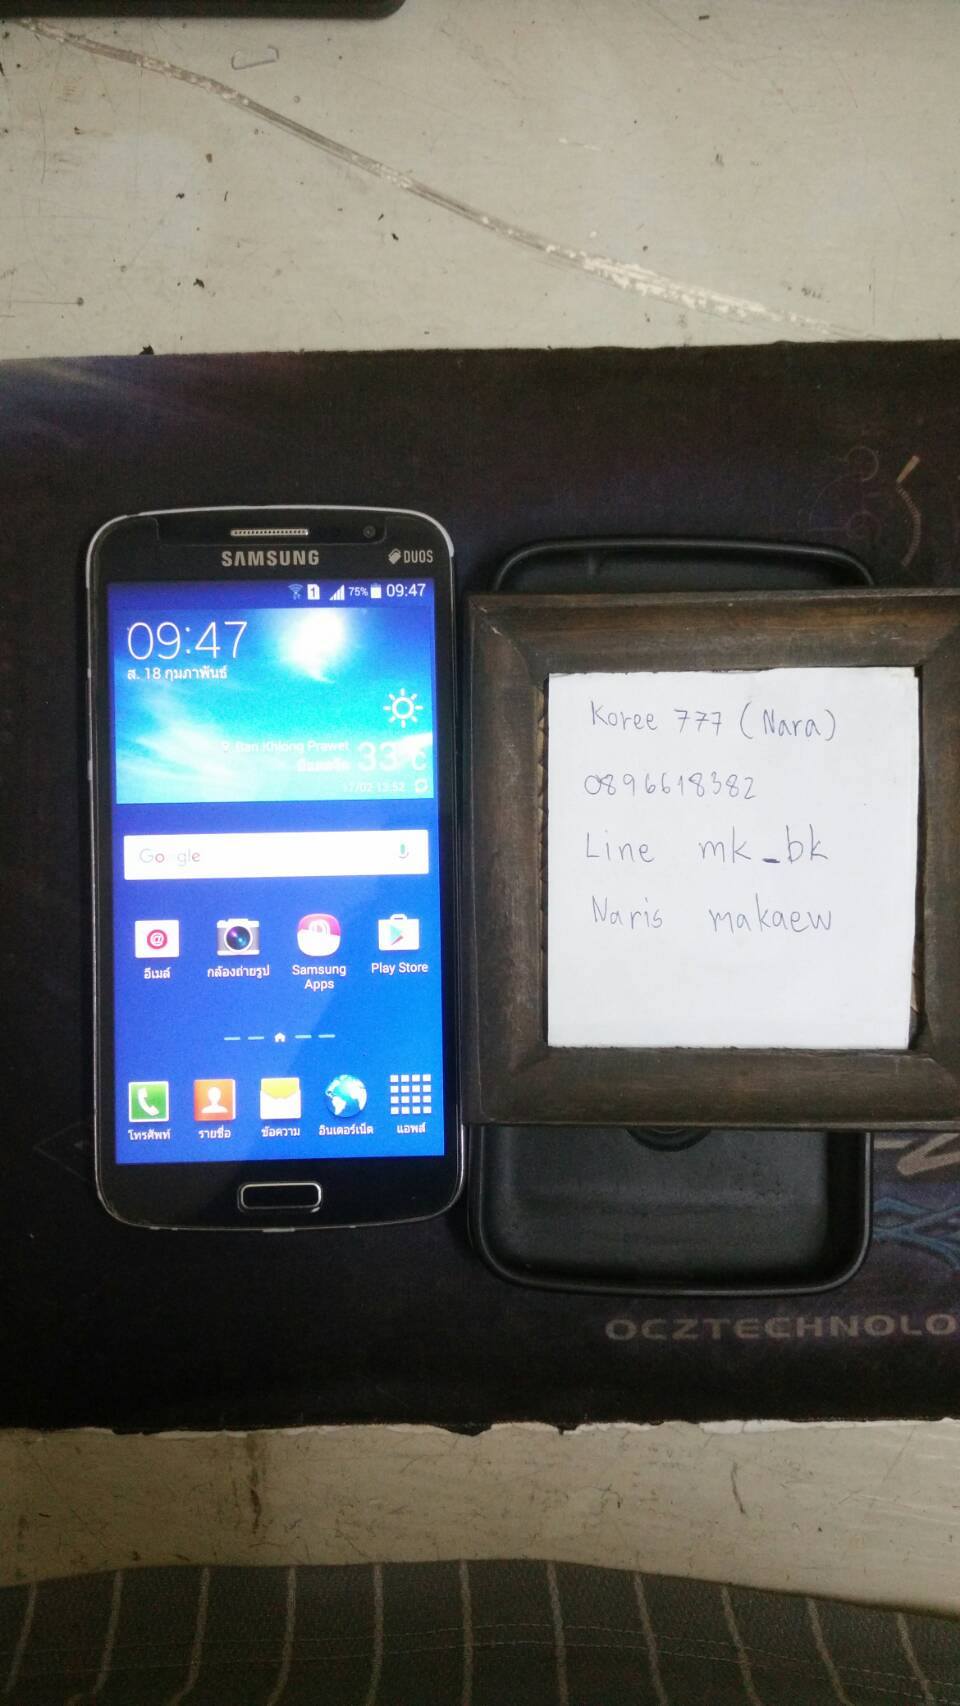 SAMSUNG DUOS
1 75% 09:47
09:47
ส. 18 กุมภาพันธ์
Ban Khlong Prawet
33°c
17/02 13:52
Google
อีเมล์ กล้องถ่ายรูป Samsung Apps Play Store
โทรศัพท์ รายชื่อ ข้อความ อินเตอร์เน็ต แอพส์
Koree 777 (Nara)
0896618382
Line mk_bk
Naris makaew
OCZTECHNOLO